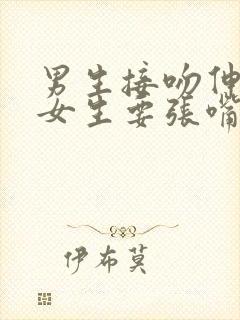 男生接吻伸
女生要张嘴
伊布莫